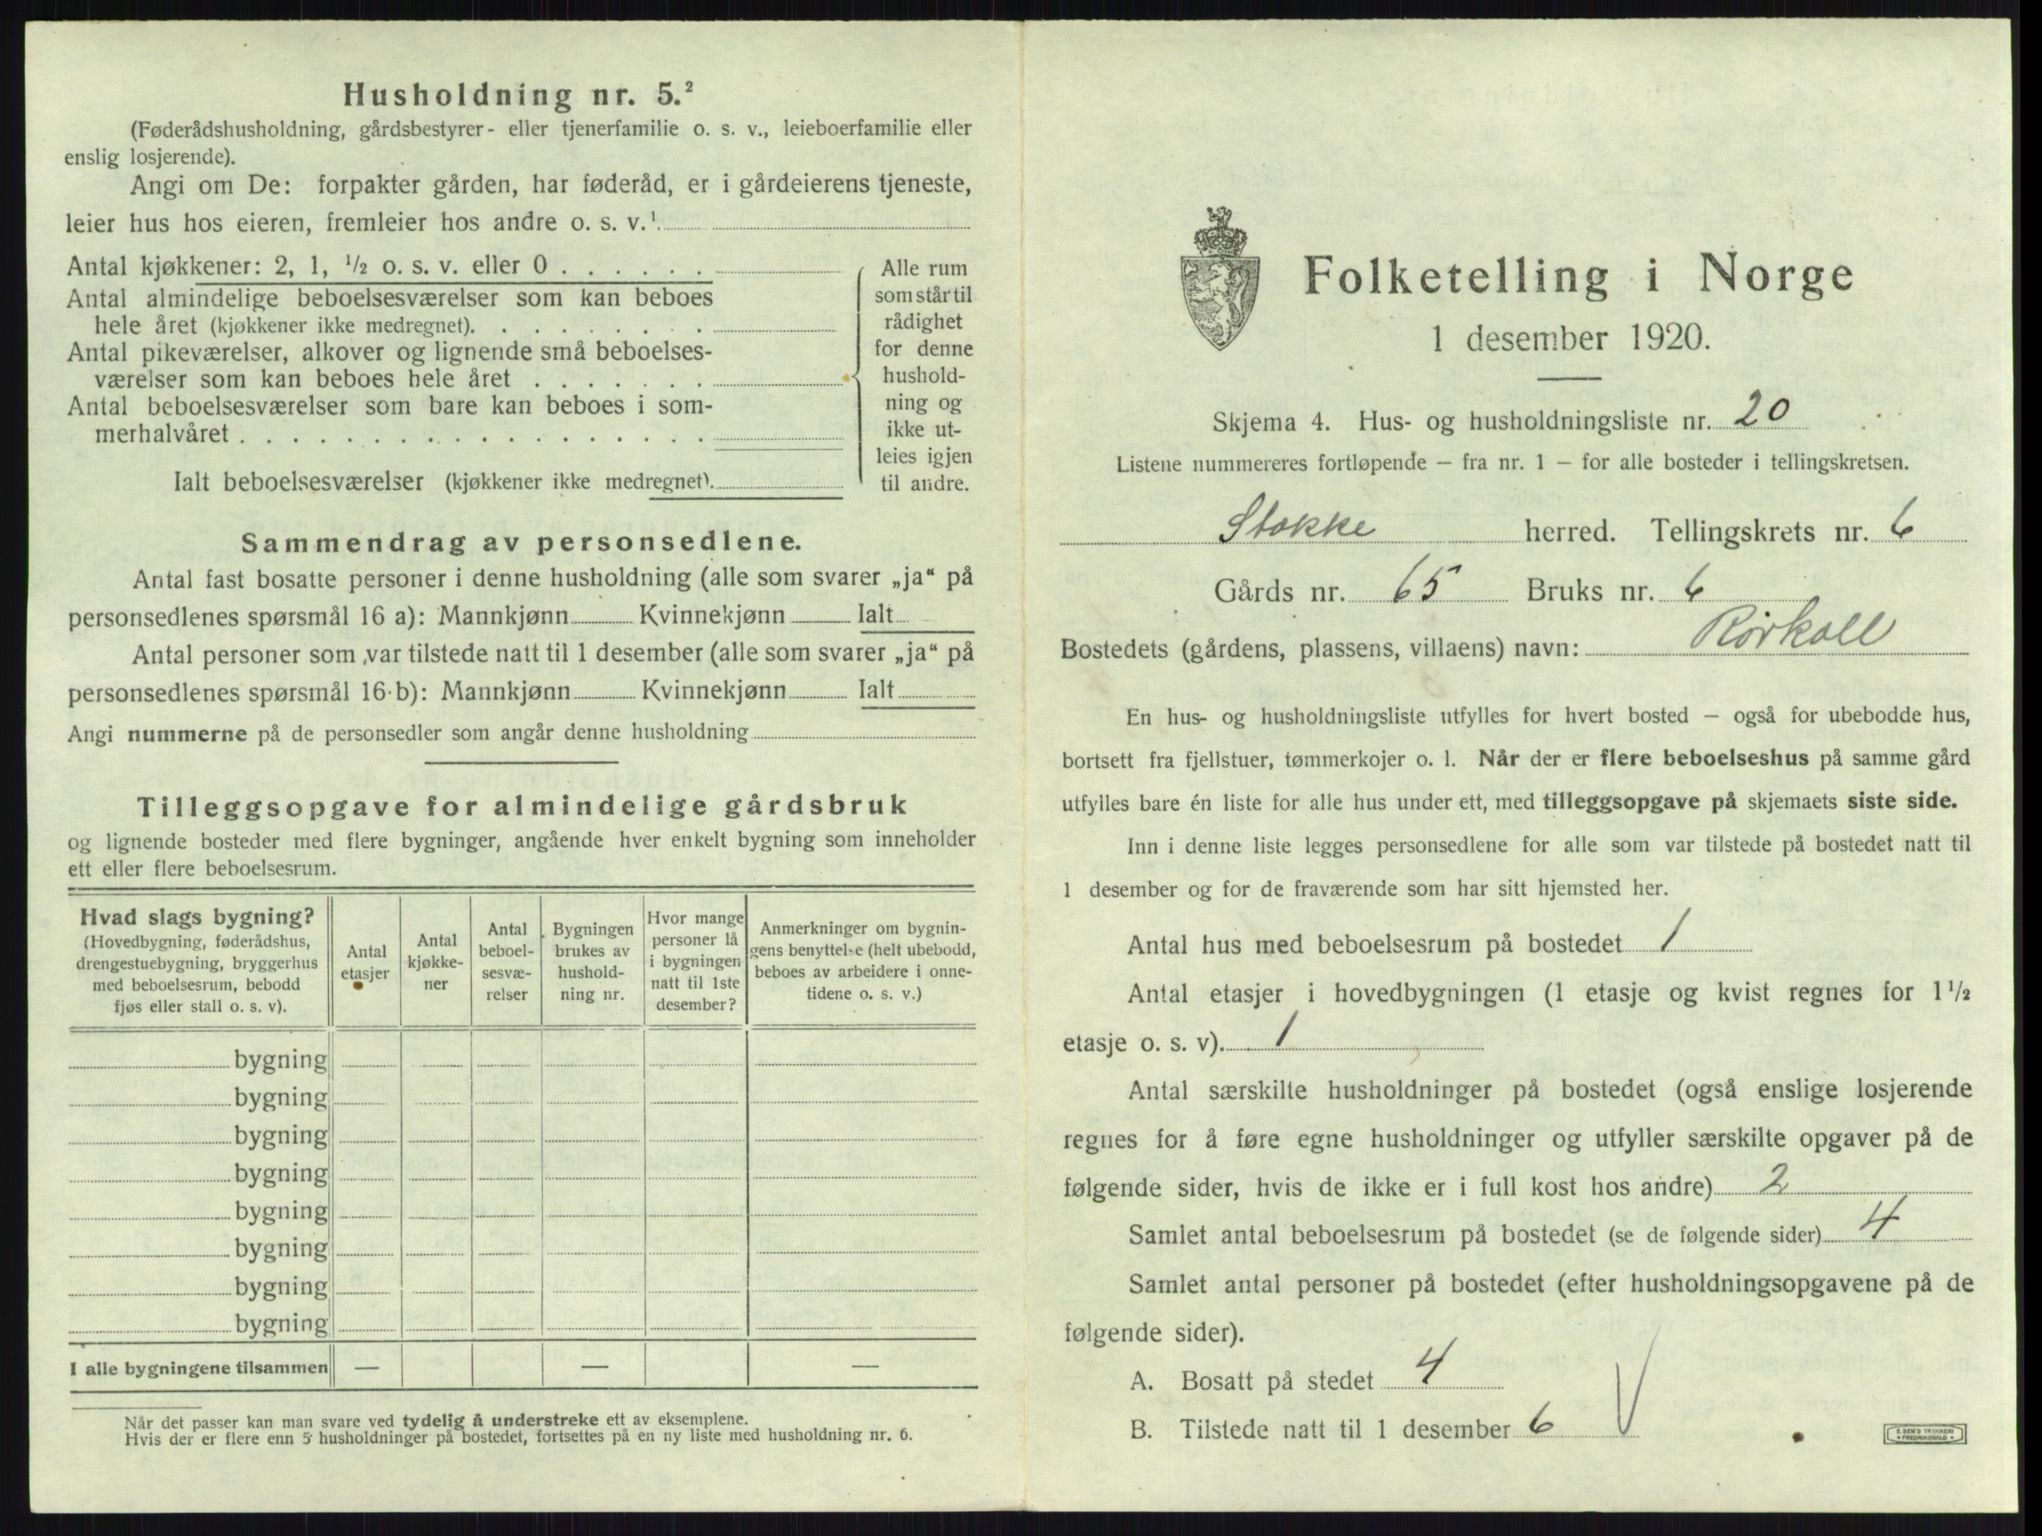 Husholdning nr. 5.²
(Føderådshusholdning, gårdsbestyrer- eller tjenerfamilie o. s. v., leieboerfamilie eller
enslig losjerende).
Angi om De: forpakter gården, har føderåd, er i gårdeierens tjeneste,
leier hus hos eieren, fremleier hos andre o. s. v.¹
Antal kjøkkener: 2, 1, ½ o. s. v. eller 0 . . . . . .
Antal almindelige beboelsesværelser som kan beboes
hele året (kjøkkener ikke medregnet). . . . . . . . .
Antal pikeværelser, alkover og lignende små beboelses-
værelser som kan beboes hele året . . . . . . .
Antal beboelsesværelser som bare kan beboes i som-
merhalvåret . . . . . . . . . . . . . . . . . .
Ialt beboelsesværelser (kjøkkener ikke medregnet).
Alle rum
som står til
rådighet
for denne
hushold-
ning og
ikke ut-
leies igjen
til andre.
Sammendrag av personsedlene.
Antal fast bosatte personer i denne husholdning (alle som svarer „ja“ på
personsedlenes spørsmål 16 a): Mannkjønn Kvinnekjønn Ialt
Antal personer som var tilstede natt til 1 desember (alle som svarer „ja“ på
personsedlenes spørsmål 16 b): Mannkjønn Kvinnekjønn Ialt
Angi nummerne på de personsedler som angår denne husholdning
Tilleggsopgave for almindelige gårdsbruk
og lignende bosteder med flere bygninger, angående hver enkelt bygning som inneholder
ett eller flere beboelsesrum.
Hvad slags bygning?
(Hovedbygning, føderådshus,
drengestuebygning, bryggerhus
med beboelsesrum, bebodd
fjøs eller stall o. s. v).
Antal
etasjer
Antal
kjøkke-
ner
Antal
beboel-
sesvæ-
relser
Bygningen
brukes av
hushold-
ning nr.
Hvor mange
personer lå
i bygningen
natt til 1ste
desember?
Anmerkninger om bygnin-
gens benyttelse (helt ubebodd,
beboes av arbeidere i onne-
tidene o. s. v.)
bygning
bygning
bygning
bygning
bygning
bygning
bygning
bygning
I alle bygningene tilsammen — — —
Når det passer kan man svare ved tydelig å understreke ett av eksemplene.
Hvis der er flere enn 5 husholdninger på bostedet, fortsettes på en ny liste med husholdning nr. 6.
Folketelling i Norge
1 desember 1920.
Skjema 4. Hus- og husholdningsliste nr. 20
Listene nummereres fortløpende — fra nr. 1 — for alle bosteder i tellingskretsen.
Stokke herred. Tellingskrets nr. 6
Gårds nr. 65 Bruks nr. 6
Bostedets (gårdens, plassens, villaens) navn: Rørkoll
En hus- og husholdningsliste utfylles for hvert bosted — også for ubebodde hus,
bortsett fra fjellstuer, tømmerkojer o. l. Når der er flere beboelseshus på samme gård
utfylles bare én liste for alle hus under ett, med tilleggsopgave på skjemaets siste side.
Inn i denne liste legges personsedlene for alle som var tilstede på bostedet natt til
1 desember og for de fraværende som har sitt hjemsted her.
Antal hus med beboelsesrum på bostedet 1
Antal etasjer i hovedbygningen (1 etasje og kvist regnes for 1½
etasje o. s. v). 1
Antal særskilte husholdninger på bostedet (også enslige losjerende
regnes for å føre egne husholdninger og utfyller særskilte opgaver på de
følgende sider, hvis de ikke er i full kost hos andre) 2
Samlet antal beboelsesrum på bostedet (se de følgende sider) 4
Samlet antal personer på bostedet (efter husholdningsopgavene på de
følgende sider).
A. Bosatt på stedet 4
B. Tilstede natt til 1 desember 6